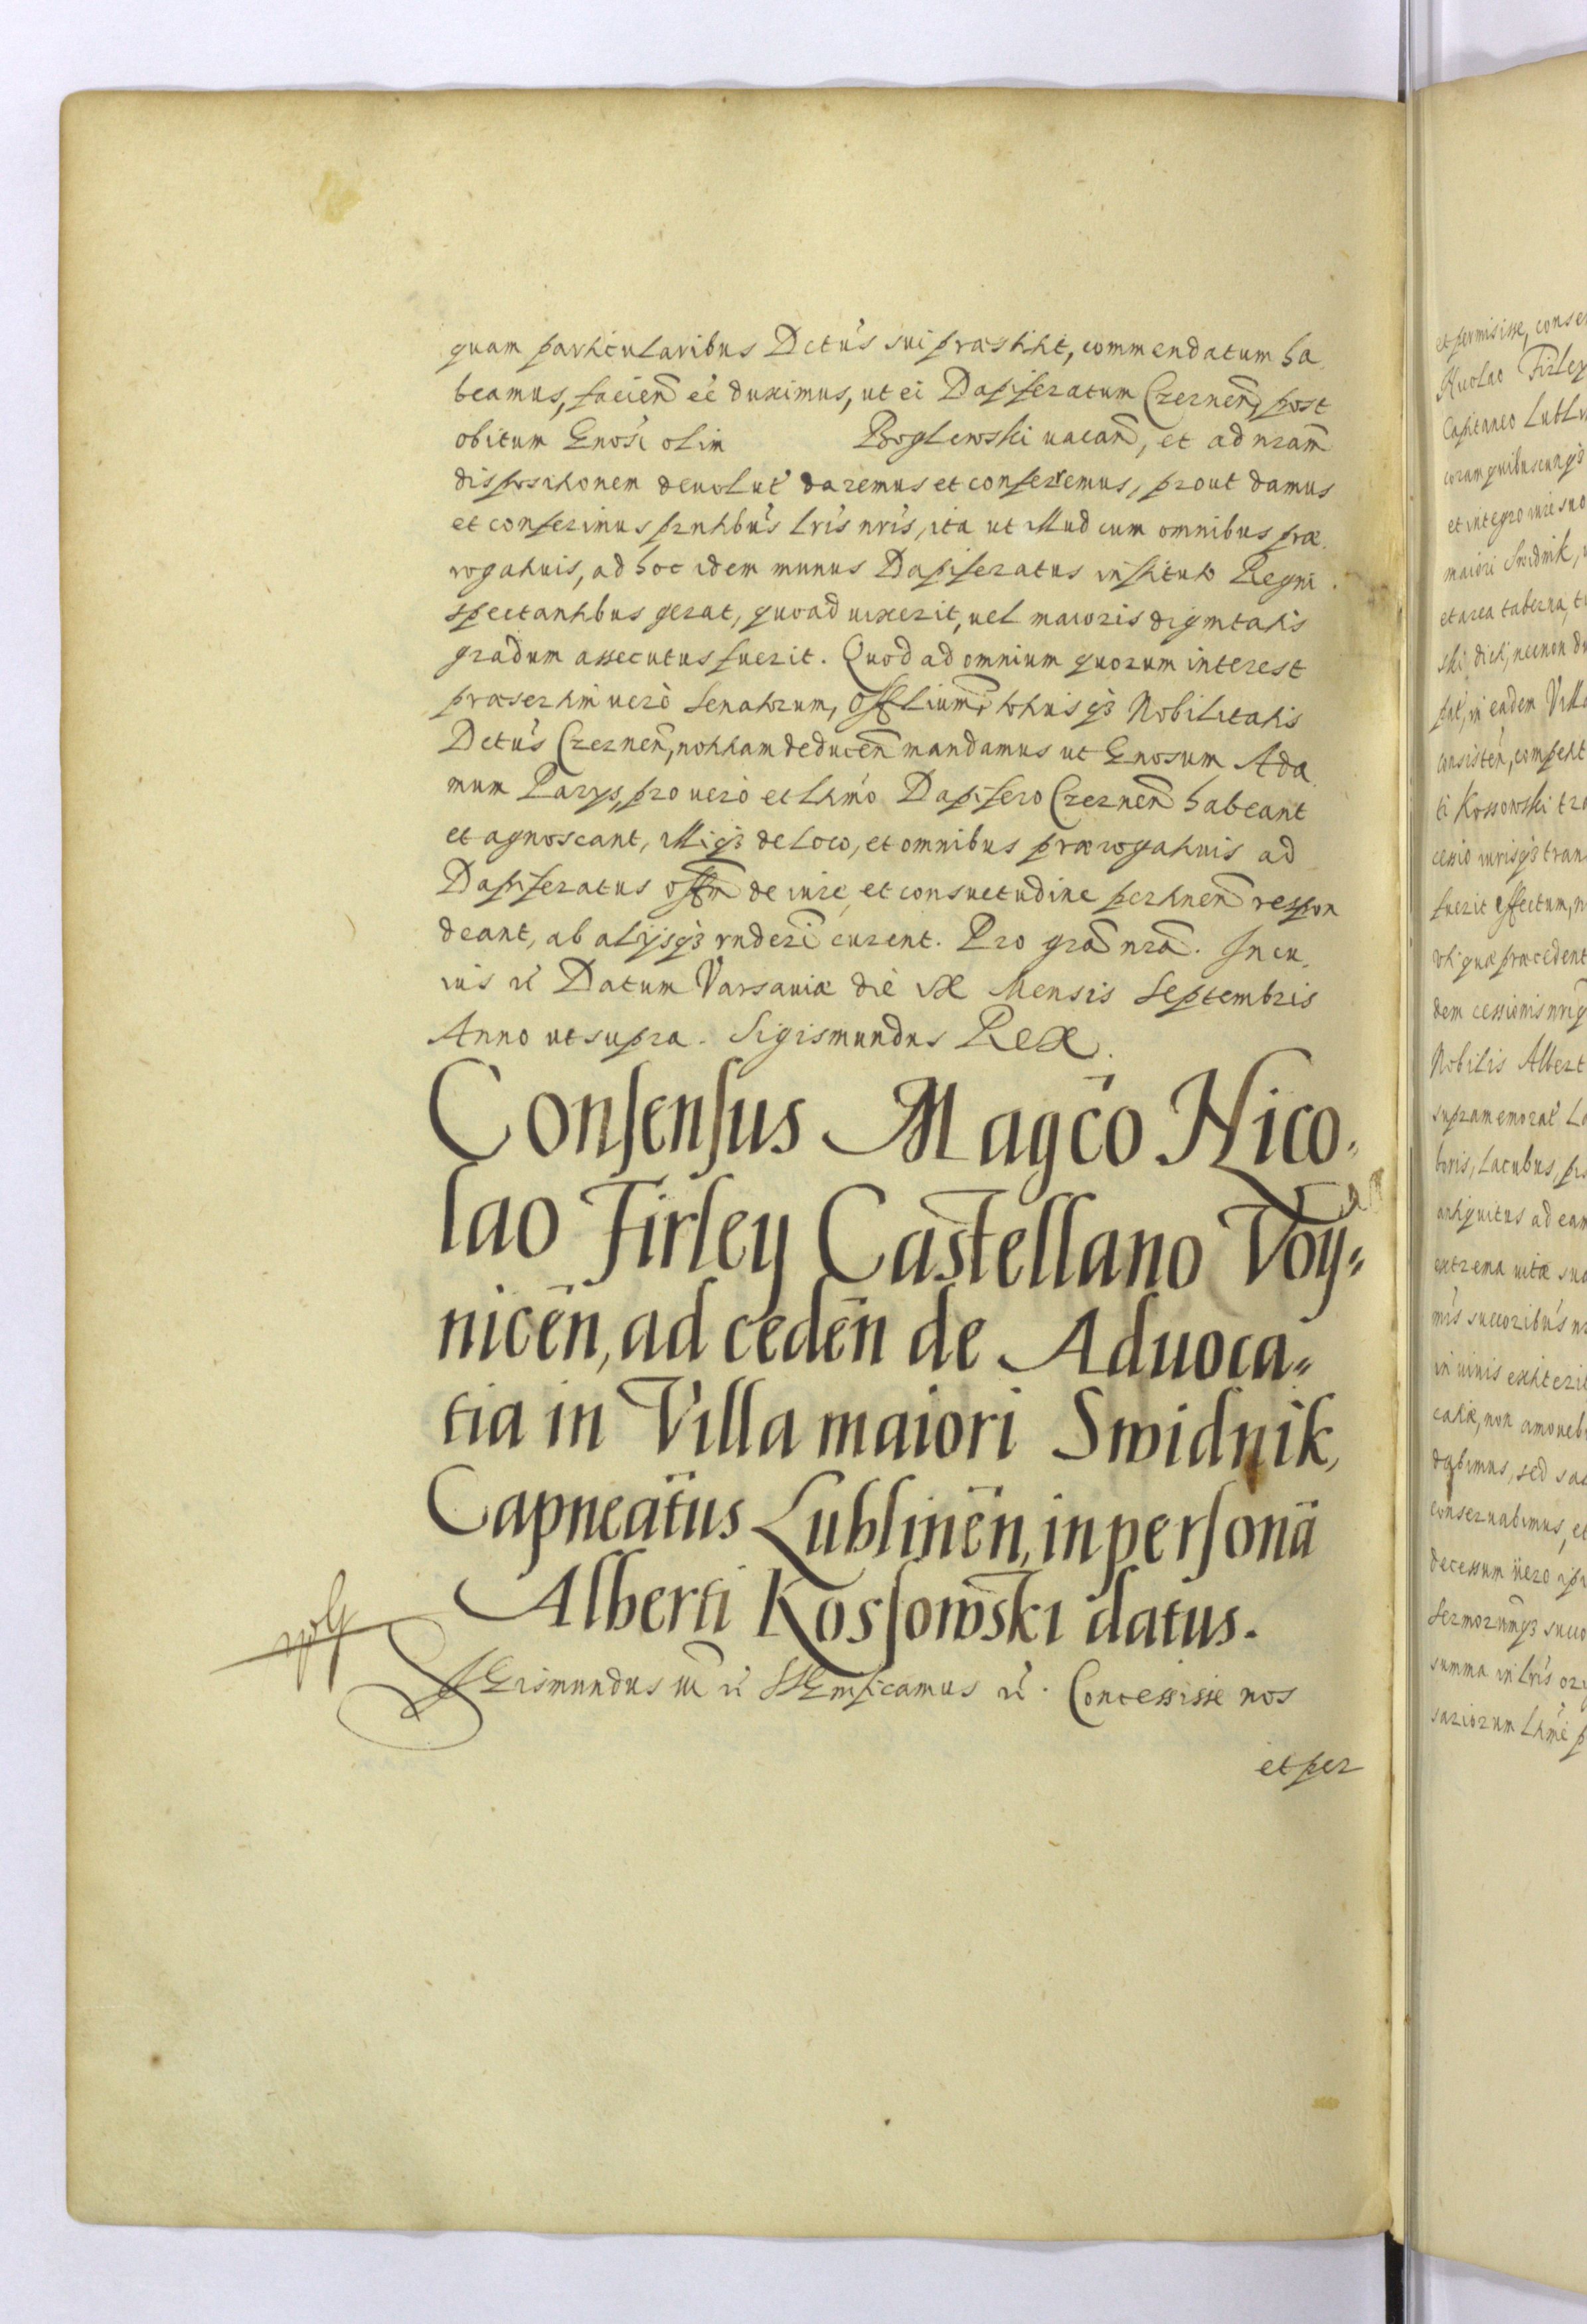 quam particularibus Dctus sui præstitit, commendatum ha
beamus, facien̄ ec̄ duximus, ut ei Dapiferatum Czernen̄, post
obitum Gnosi olim Boglewski uacan̄, et ad nram̄
dispositionem deuolut daremus et conferremus, prout damus
et conferimus pntibus lris nris, ita ut illud cum omnibus præ
rogatiuis, ad hoc idem munus Dapiferatus instituto Regni
spectantibus gerat, quoad uixerit, uel maioris dignitatis
gradum assecutus fuerit. Quod ad omnium quorum interest
præsertim uerò Senatorum, Offlium, totiusq3 Nobilitatis
Dctus Czernen̄, notitiam deducen̄ mandamus ut Gnosum Ada
mum Parys, pro uero et ltimo Dapifero Czernen̄ habeant
et agnoscant, illiq3 de loco, et omnibus prærogatiuis ad
Dapiferatus offm̄ de iure, et consuetudine pertinen̄ respon
deant, ab alijsq3 rnderi curent. Pro gra̅ nra̅. In cu
ius rē Datum Varsauiæ die IX Mensis Septembris
Anno ut supra. Sigismundus Rex.
Consensus Magc̄o Nico=
lao Firley Castellano Voy=
nicēn, ad cedēn de Aduoca=
tia in Villa maiori Swidnik,
Capneātus Lublinēn, in personā
Alberti Kossowski datus.
SIGismundus III rē SIGnificamus rē. Concessisse nos
et per
et permisisse, conse
Nicolao Firley
Capitaneo Lubli
coram quibuscunq3
et integro iure suo
maiori Swidnik,
et area taberna,
ski dict, necnon
in eadem Villa
consisten, compeht
ti Kossowski
cessio iurisq3 tran
fuerit effectum,
quæ præcedent
dem cessionis
Nobilis Albert
supramemorat
lacubus,
antiquitus ad eam
extrema uitæ suæ
succoribus
in uiuis extiterit
catiæ, non amoueb
dabimus, sed
conseruabimus, et
decessum uero
succo
summa in lris